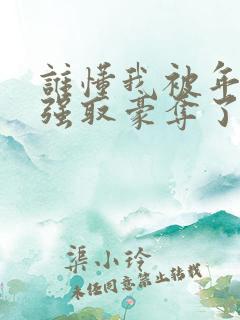 誰懂我被年
强取豪夺了
渠小玲
未任同意禁止转载